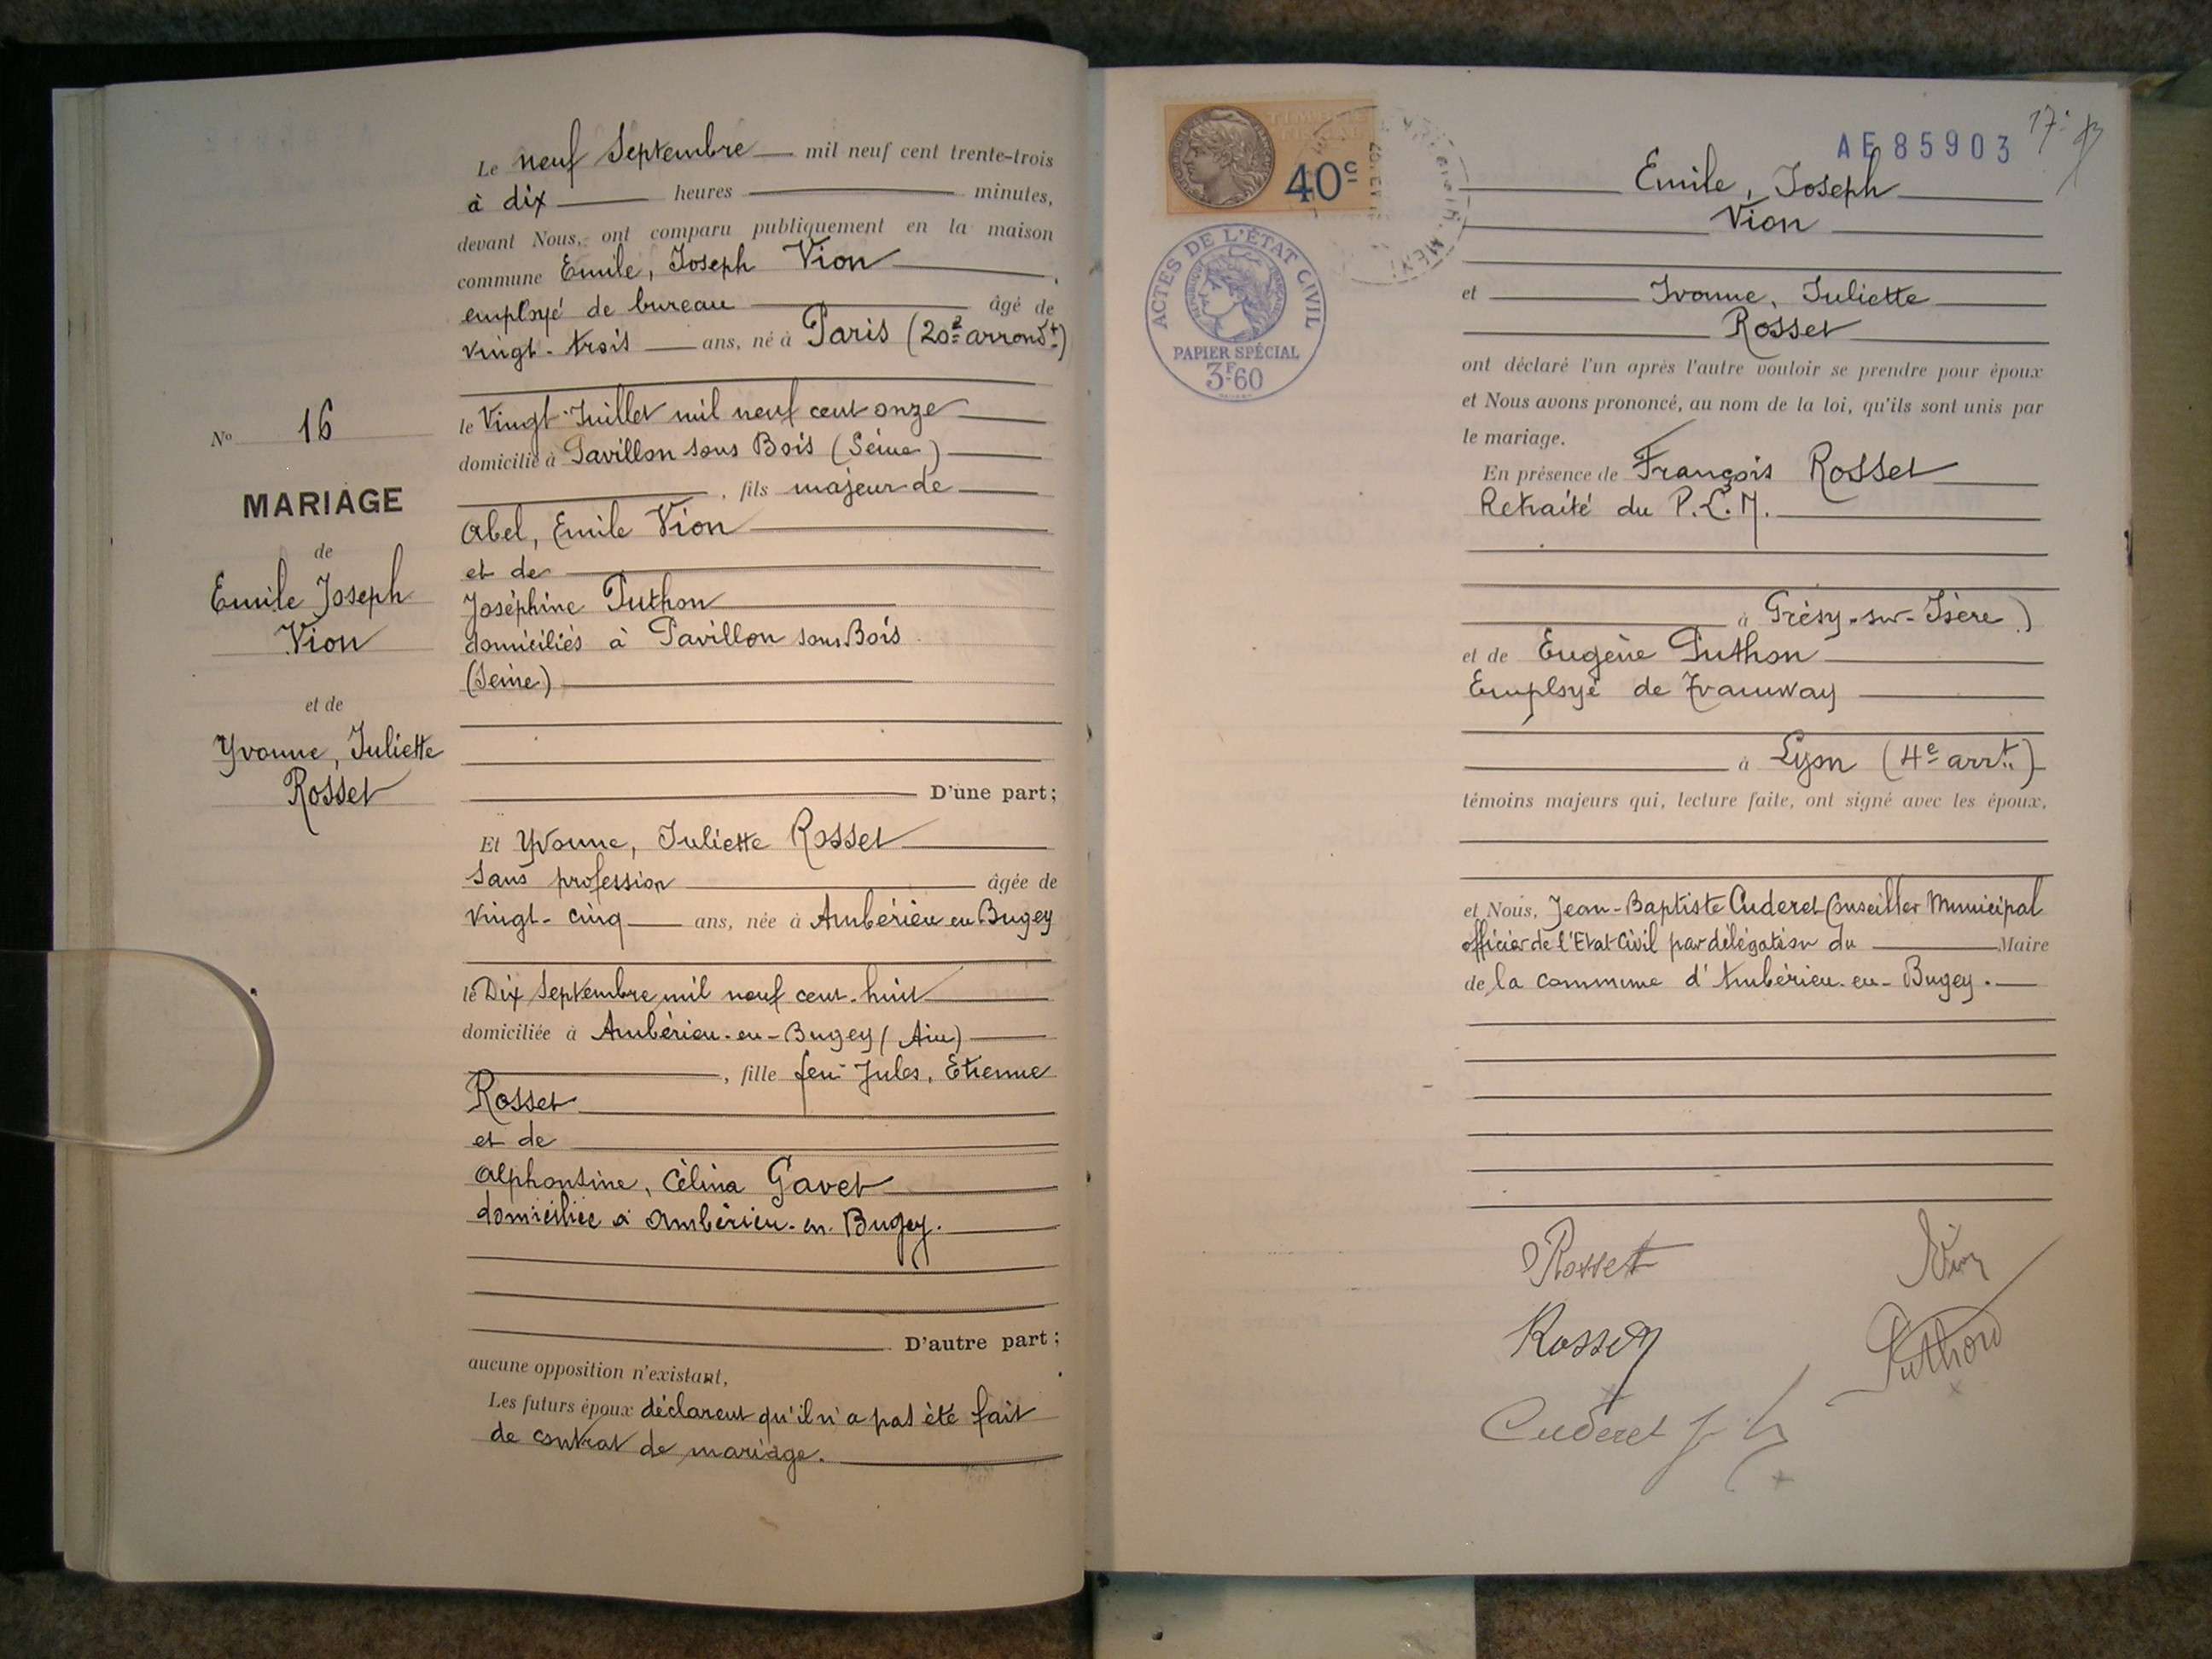 Le neuf Septembre mil neuf cent trente-trois
à dix heures minutes,
devant Nous, ont comparu publiquement en la maison
commune Emile, Joseph Vion
employé de bureau âgé de
vingt-trois ans, né à Paris (20e arrondt)
le Vingt Juillet mil neuf cent onze
domicilié à Pavillon sous Bois (Seine)
, fils majeur de
Abel, Emile Vion
et de
Joséphine Puthon
domiciliés à Pavillon sous Bois
(Seine)
D'une part;
Et Yvonne, Juliette Rosset
sans profession âgée de
vingt-cinq ans, née à Ambérieu en Bugey
le Dix Septembre mil neuf cent-huit
domiciliée à Ambérieu-en-Bugey (Ain)
, fille feu Jules, Etienne
Rosset
et de
Alphonsine, Célina Gavet
domiciliée à Ambérieu-en-Bugey.
D'autre part;
aucune opposition n'existant,
Les futurs époux déclarent qu'il n'a pas été fait
de contrat de mariage.
No 16
MARIAGE
de
Emile Joseph
Vion
et de
Yvonne, Juliette
Rosset
40c
ACTES DE L'ÉTAT CIVIL
RÉPUBLIQUE FRANÇAISE
PAPIER SPÉCIAL
3F60
AE 85903
17e
Emile, Joseph
Vion
et Yvonne, Juliette
Rosset
ont déclaré l'un après l'autre vouloir se prendre pour époux
et Nous avons prononcé, au nom de la loi, qu'ils sont unis par
le mariage.
En présence de François Rosset
Retraité du P.L.M.
à Grésy-sur-Isère)
et de Eugène Puthon
Employé de Tramway
à Lyon (4e arrt)
témoins majeurs qui, lecture faite, ont signé avec les époux,
et Nous, Jean-Baptiste Cuderet Conseiller Municipal
officier de l'Etat Civil par délégation du Maire
de la commune d'Ambérieu-en-Bugey.
Rosset
Vion
Rosset
Puthon
Cuderet J. B.